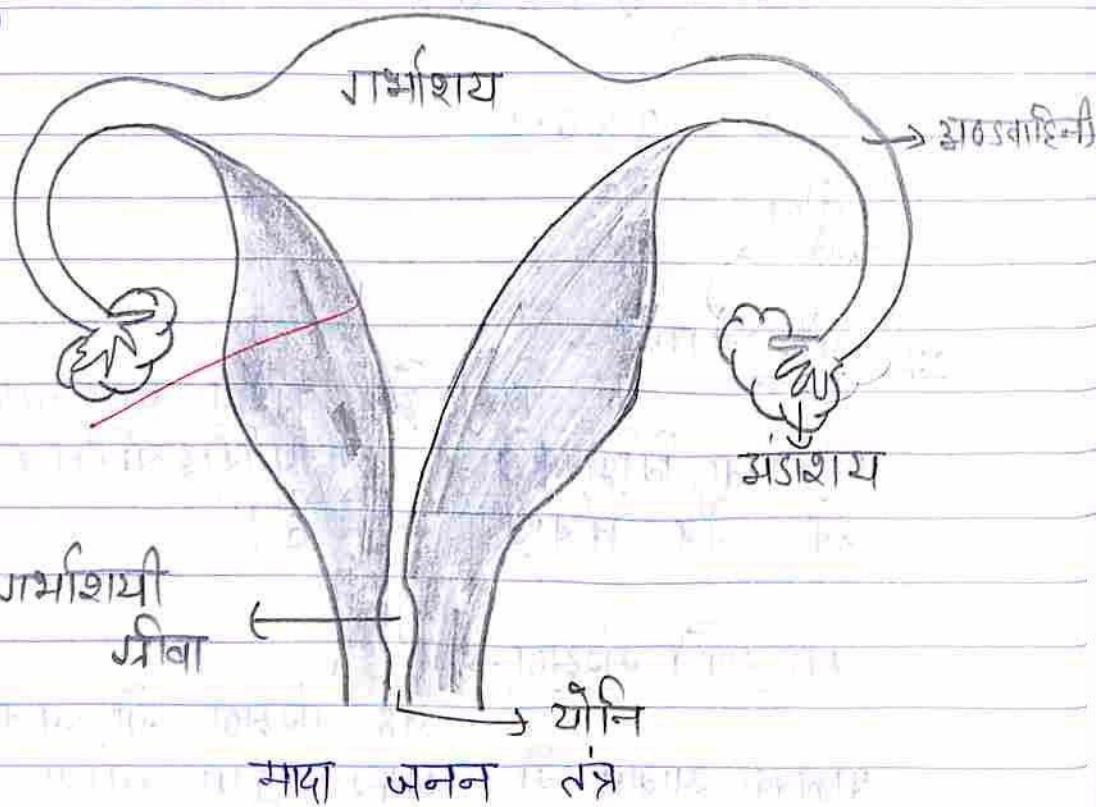 गर्भाशय
अण्डवाहिनी
अंडाशय
गर्भाशयी
ग्रीवा
योनि
मादा जनन तंत्र